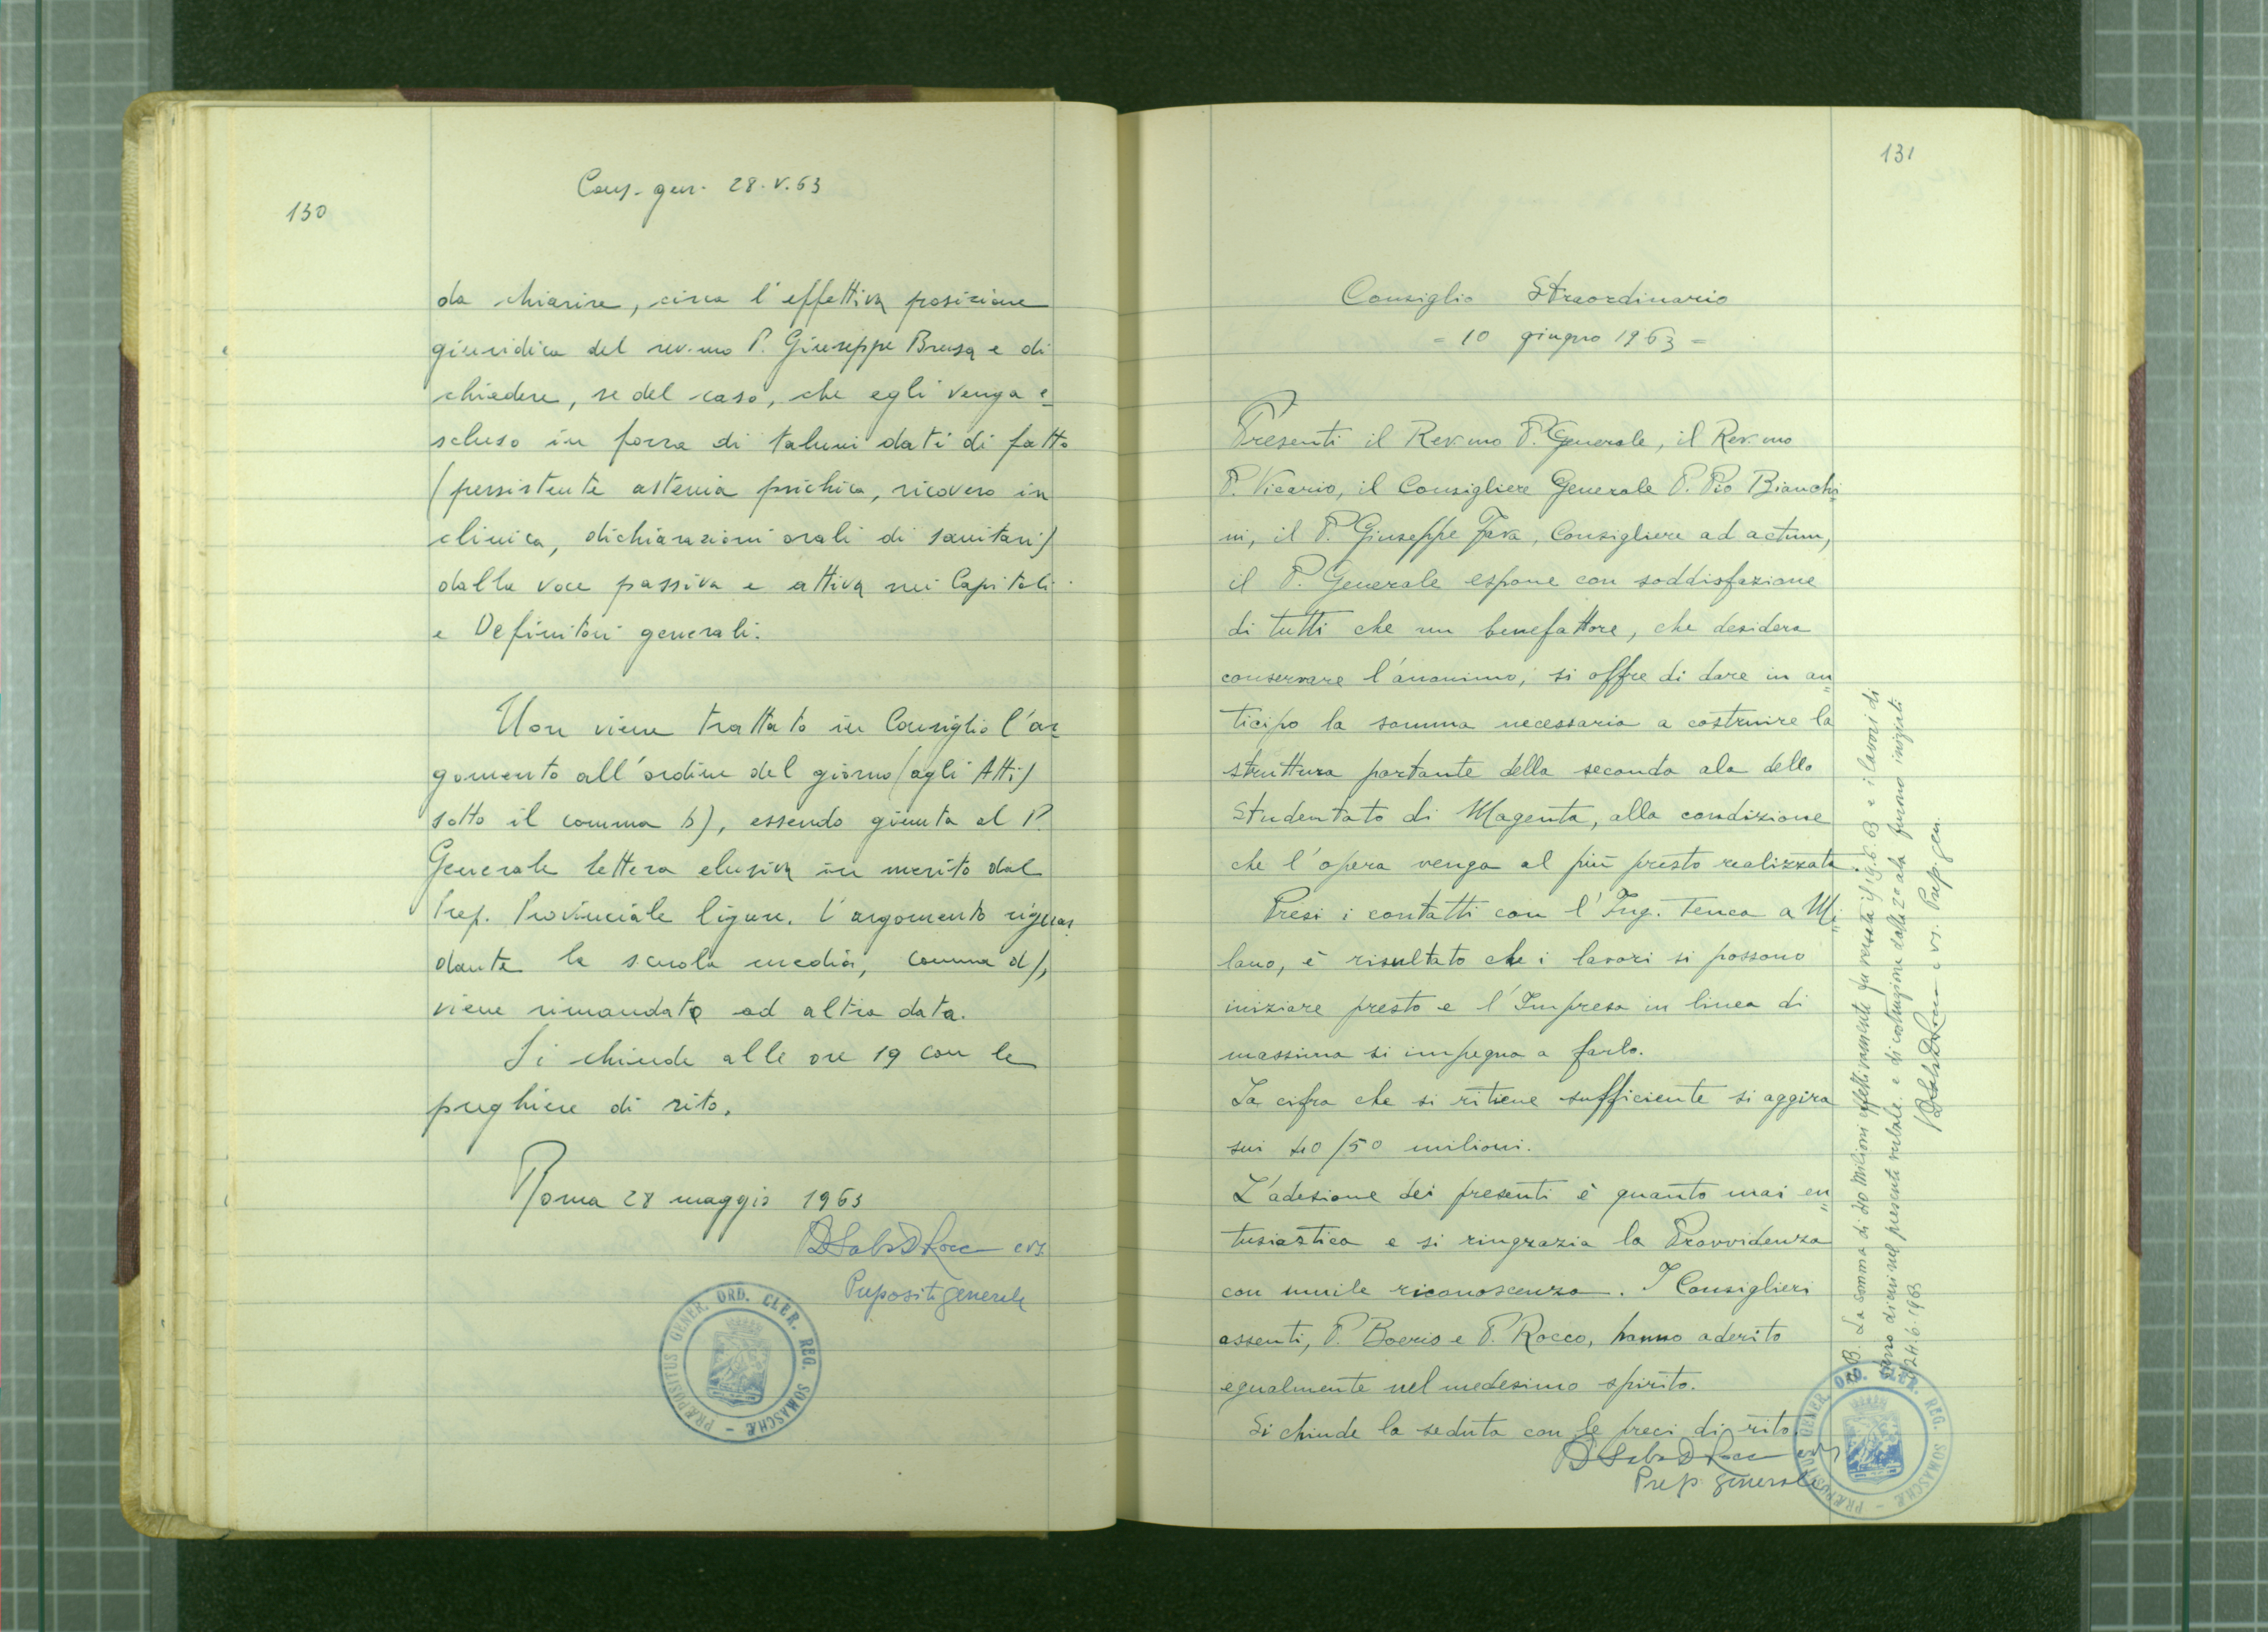 130
Cons. gen. 28.V.63
da chiarire, circa l'effettiva posizione
giuridica del rev.mo P. Giuseppe Brusa e di
chiedere, se del caso, che egli venga e=
scluso in forza di taluni dati di fatto
(persistente astenia psichica, ricovero in
clinica, dichiarazioni orali di sanitari)
dalla voce passiva e attiva nei Capitoli
e Definitori generali.
Non viene trattato in Consiglio l'ar=
gomento all'ordine del giorno (agli Atti)
sotto il comma b), essendo giunta al P.
Generale lettera elusiva in merito dal
Prep. Provinciale ligure. L'argomento riguar=
dante la scuola media, comma d),
viene rimandato ad altra data.
Si chiude alle ore 19 con le
preghiere di rito.
Roma 28 maggio 1963
crs.
Preposito generale
PRÆPOSITUS GENER. ORD. CLER. REG. SOMASCHÆ -
131
Consiglio Straordinario
= 10 giugno 1963 =
Presenti il Rev.mo P. Generale, il Rev.mo
P. Vicario, il Consigliere Generale P. Pio Bianchi=
ni, il P. Giuseppe Fava, Consigliere ad actum,
il P. Generale espone con soddisfazione
di tutti che un benefattore, che desidera
conservare l'anonimo, si offre di dare in an"
ticipo la somma necessaria a costruire la
struttura portante della seconda ala dello
Studentato di Magenta, alla condizione
che l'opera venga al più presto realizzata.
Presi i contatti con l'Ing. Tenca a Mi"
lano, è risultato che i lavori si possono
iniziare presto e l'Impresa in linea di
massima si impegna a farlo.
La cifra che si ritiene sufficiente si aggira
sui 40/50 milioni.
L'adesione dei presenti è quanto mai en"
tusiastica e si ringrazia la Provvidenza
con umile riconoscenza. I Consiglieri
assenti, P. Boeris e P. Rocco, hanno aderito
egualmente nel medesimo spirito.
Si chiude la seduta con le preci di rito.
crs
Prep. generale
PRÆPOSITUS GENER. ORD. CLER. REG. SOMASCHÆ -
N.B. La somma di 40 Milioni effettivamente fu versata il 19.6.63 e i lavori di
cui nel presente verbale e di costruzione della 2a ala furono iniziati
24.6.1963
crs. Prep. gen.